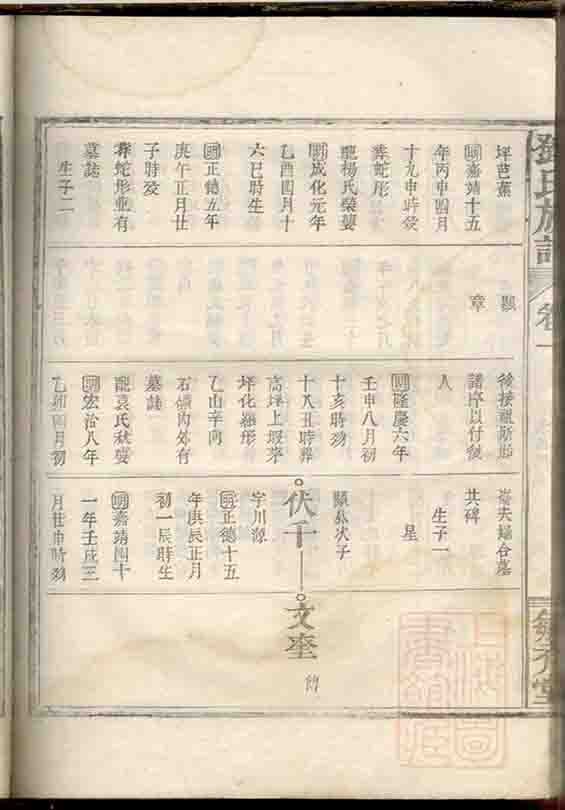 坪芭蕉
明嘉靖十五
年丙申四月
十九申時歿
葬蛇形
配楊氏榮嬰
明成化元年
乙酉四月十
六巳時生
明正德五年
庚午正月廿
子時歿
葬蛇形並有
墓誌
生子二
顯
章
後接
諸序以付後
人
明隆慶六年
壬申八月初
十亥時歿
十八丑時葬
高坪上堰來
坪化羅形
乙山辛向
石鐫內外有
墓誌
配袁氏秋嬰
明宏治八年
乙卯四月初
葬夫婦合墓
共碑
生子一
星
顯弘次子
伏千
文奎
字川源
明正德十五
年庚辰正月
初一辰時生
明嘉靖四十
一年壬戌三
月廿申時歿
氏族譜
卷一
堂